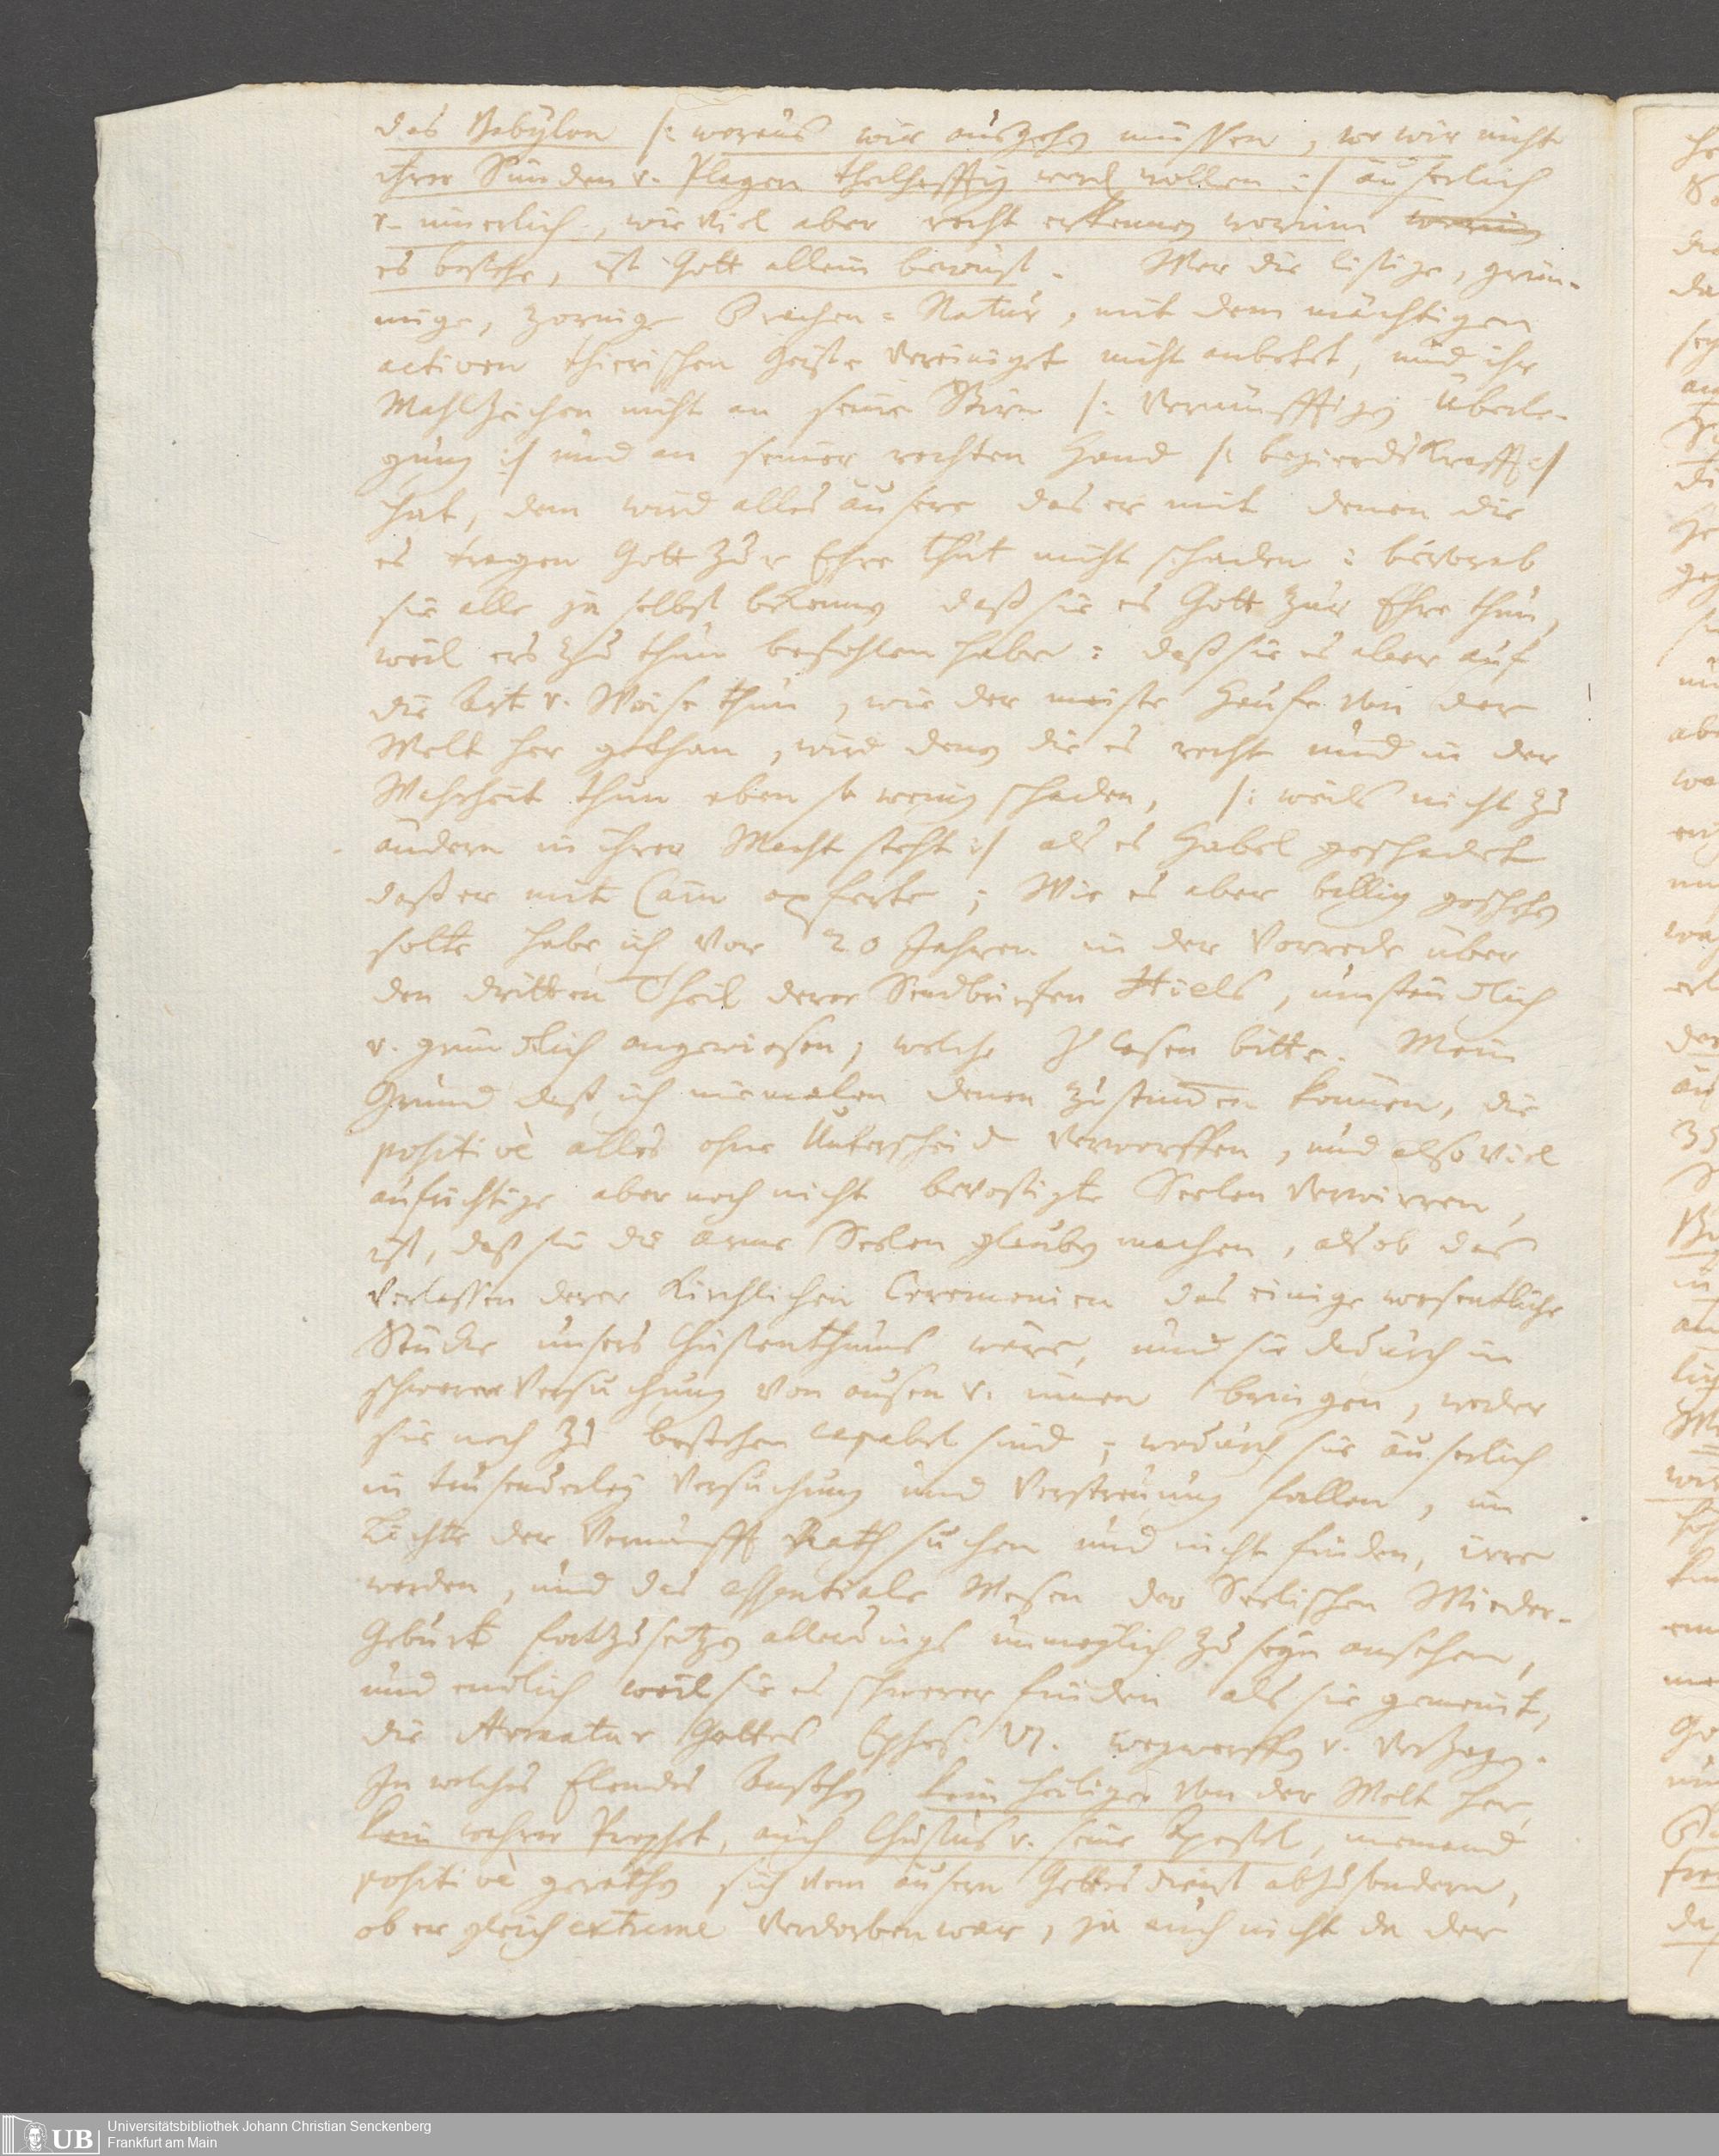 das Babylon /: woraus wir ausgehen müssen, wo wir nicht
ihrer Sünden v. Plagen theilhafftig werden wollen :/ äuserlich
v. innerlich, wie viel aber recht erkennen worinn
es bestehe, ist Gott allein bewust. Wer die listige, grim-
mige, zornige Drachen-Natur, mit dem mächtigen
activen thierischen Geiste vereiniget nicht anbetet, und ihr
Mahlzeichen nicht an seine Stirn /: vernünfftigen Überle-
gung :/ und an seiner rechten Hand /: begierdskrafft :/
hat, dem wird alles äusere das er mit denen die
es tragen Gott zur Ehre thut nicht schaden: bevorab
sie alle ja selbst bekennen daß sie es Gott zur Ehre thun,
weil ers zu thun befohlen habe: daß sie es aber auf
die Art v. Weise thun, wie der meiste Haufe von der
Welt her gethan, wird denen die es recht und in der
Wahrheit thun eben so wenig schaden, /: weils nicht zu
ändern in ihrer Macht steht :/ als es Habel geschadet
daß er mit Cain opferte; Wie es aber billig geschehen
solte habe ich vor 20 Jahren in der Vorrede über
den dritten Theil derer Sendbriefen Hiels, umständlich
v. gründlich angewiesen, welche zu lesen bitte. Mein
Grund daß ich niemalen denen zustimmen können, die
positivè alles ohne Unterscheid verwerffen, und also viel
aufrichtige aber noch nicht bevestigte Seelen verwirren,
ist, daß sie die arme Seelen glauben machen, als ob das
Verlassen derer Kirchlichen Ceremonien das einige wesentliche
Stücke unsers Christenthums wäre, und sie dadurch in
schwere Versuchung von ausen v. innen bringen, weder
sie noch zu bestehen capabel sind; wodurch sie äuserlich
in tausenderley Versuchung und Verstreuung fallen, im
Lichte der Vernunfft Rath suchen und nicht finden, irre
werden, und das essentiale Wesen der Seelischen Wieder-
Geburt fortzusetzen allerdings unmöglich zu seyn ansehen,
und endlich weil sie es schwerer finden als sie gemeint,
die Armatur Gottes Ephes. VI. wegwerffen v. verzagen.
In welches Elendes kein heiliger von der Welt her,
kein wahrer Prophet, auch Christus v. seine Apostel, niemand
positivè gerathen sich vom äusern Gottesdienst abzusondern,
ob er gleich extreme verdorben war, ja auch nicht da der
Universitätsbibliothek Johann Christian Senckenberg
Frankfurt am Main
UB